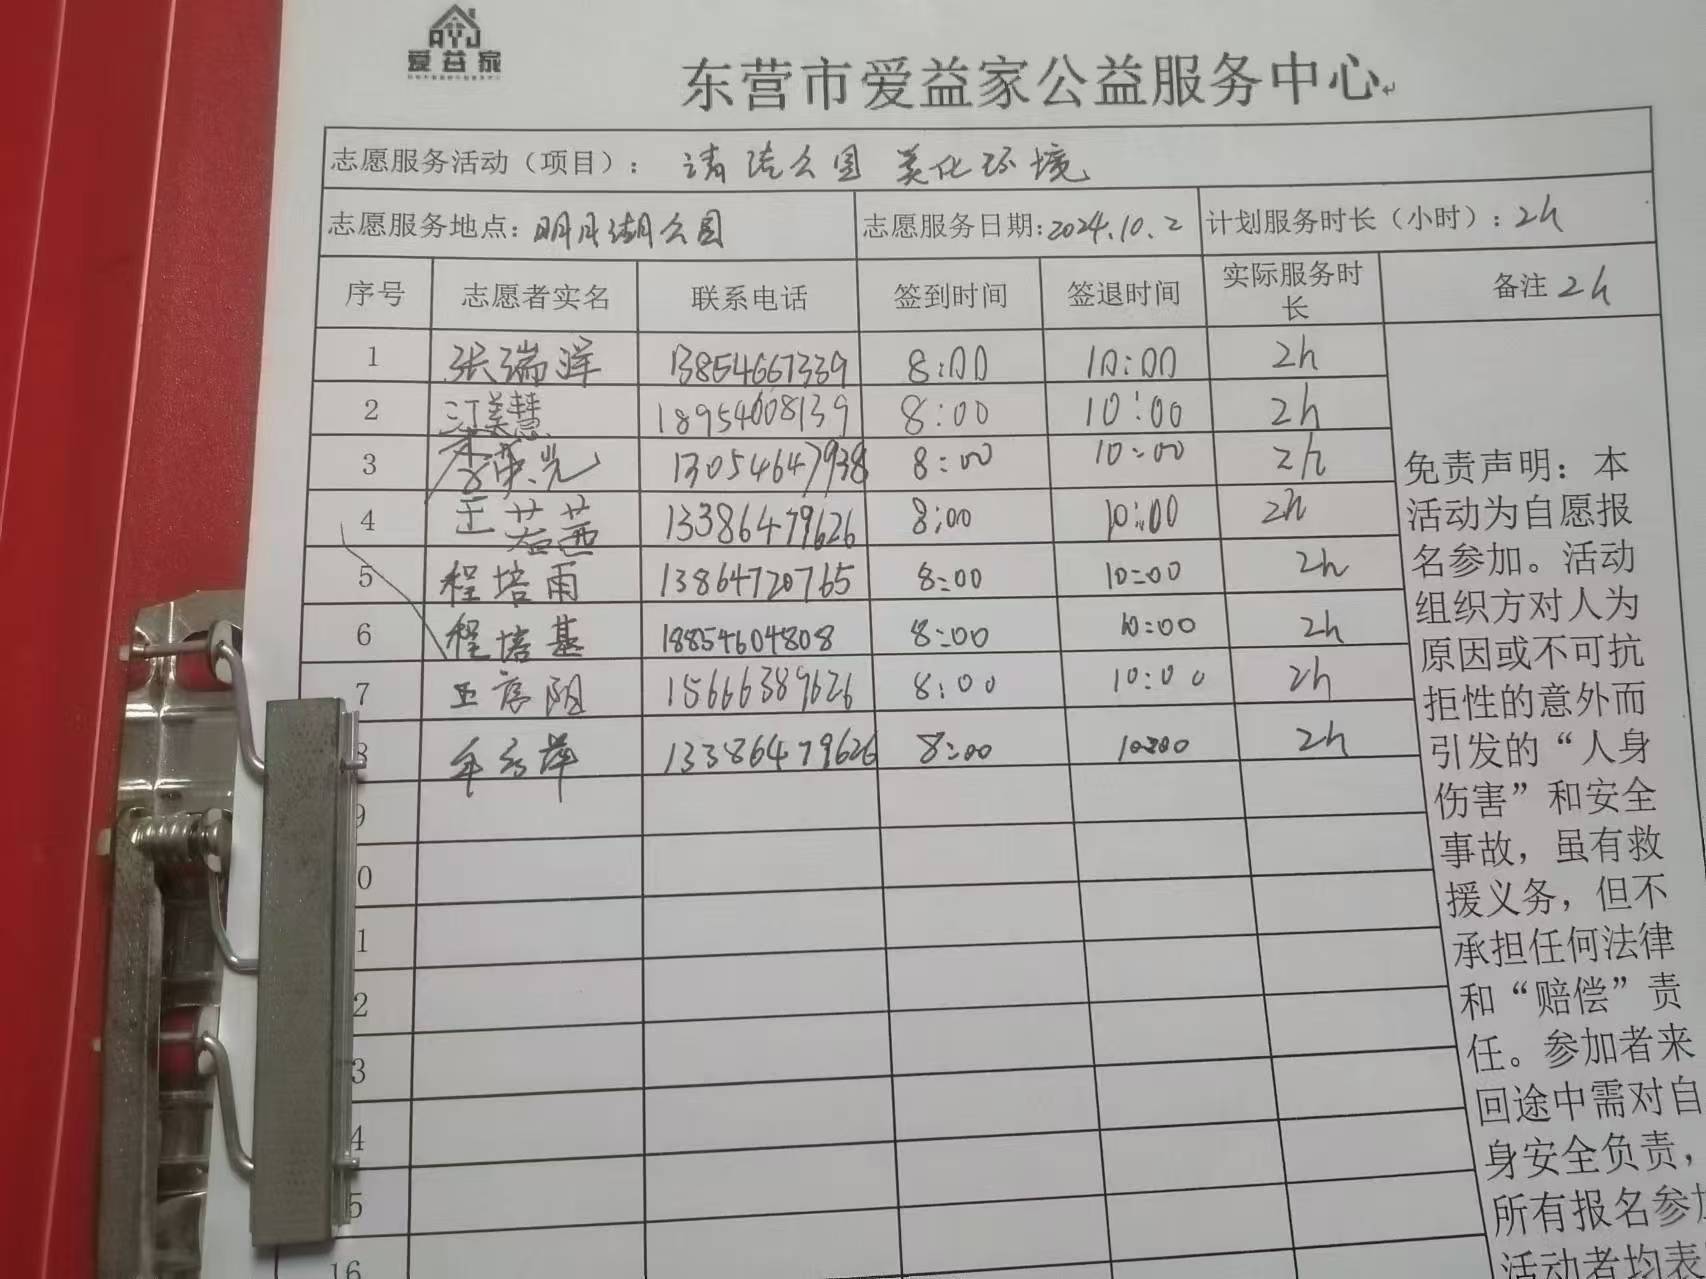 爱益家
东营市爱益家公益服务中心
志愿服务活动（项目）： 清洁公园 美化环境
志愿服务地点：明月湖公园 志愿服务日期：2024.10.2 计划服务时长（小时）：2h
序号 志愿者实名 联系电话 签到时间 签退时间 实际服务时长 备注 2h
1 张瑞洋 13854667339 8:00 10:00 2h
2 江美慧 18954608139 8:00 10:00 2h
3 李英光 13054647938 8:00 10:00 2h
4 王若茜 13386479626 8:00 10:00 2h
5 程培雨 13864720765 8:00 10:00 2h
6 程培基 18854604808 8:00 10:00 2h
7 王彦阻 15666389626 8:00 10:00 2h
8 13386479626 8:00 10:00 2h
9
0
1
2
3
4
5
16
免责声明：本
活动为自愿报
名参加。活动
组织方对人为
原因或不可抗
拒性的意外而
引发的“人身
伤害”和安全
事故，虽有救
援义务，但不
承担任何法律
和“赔偿”责
任。参加者来
回途中需对自
身安全负责，
所有报名参加
活动者均表